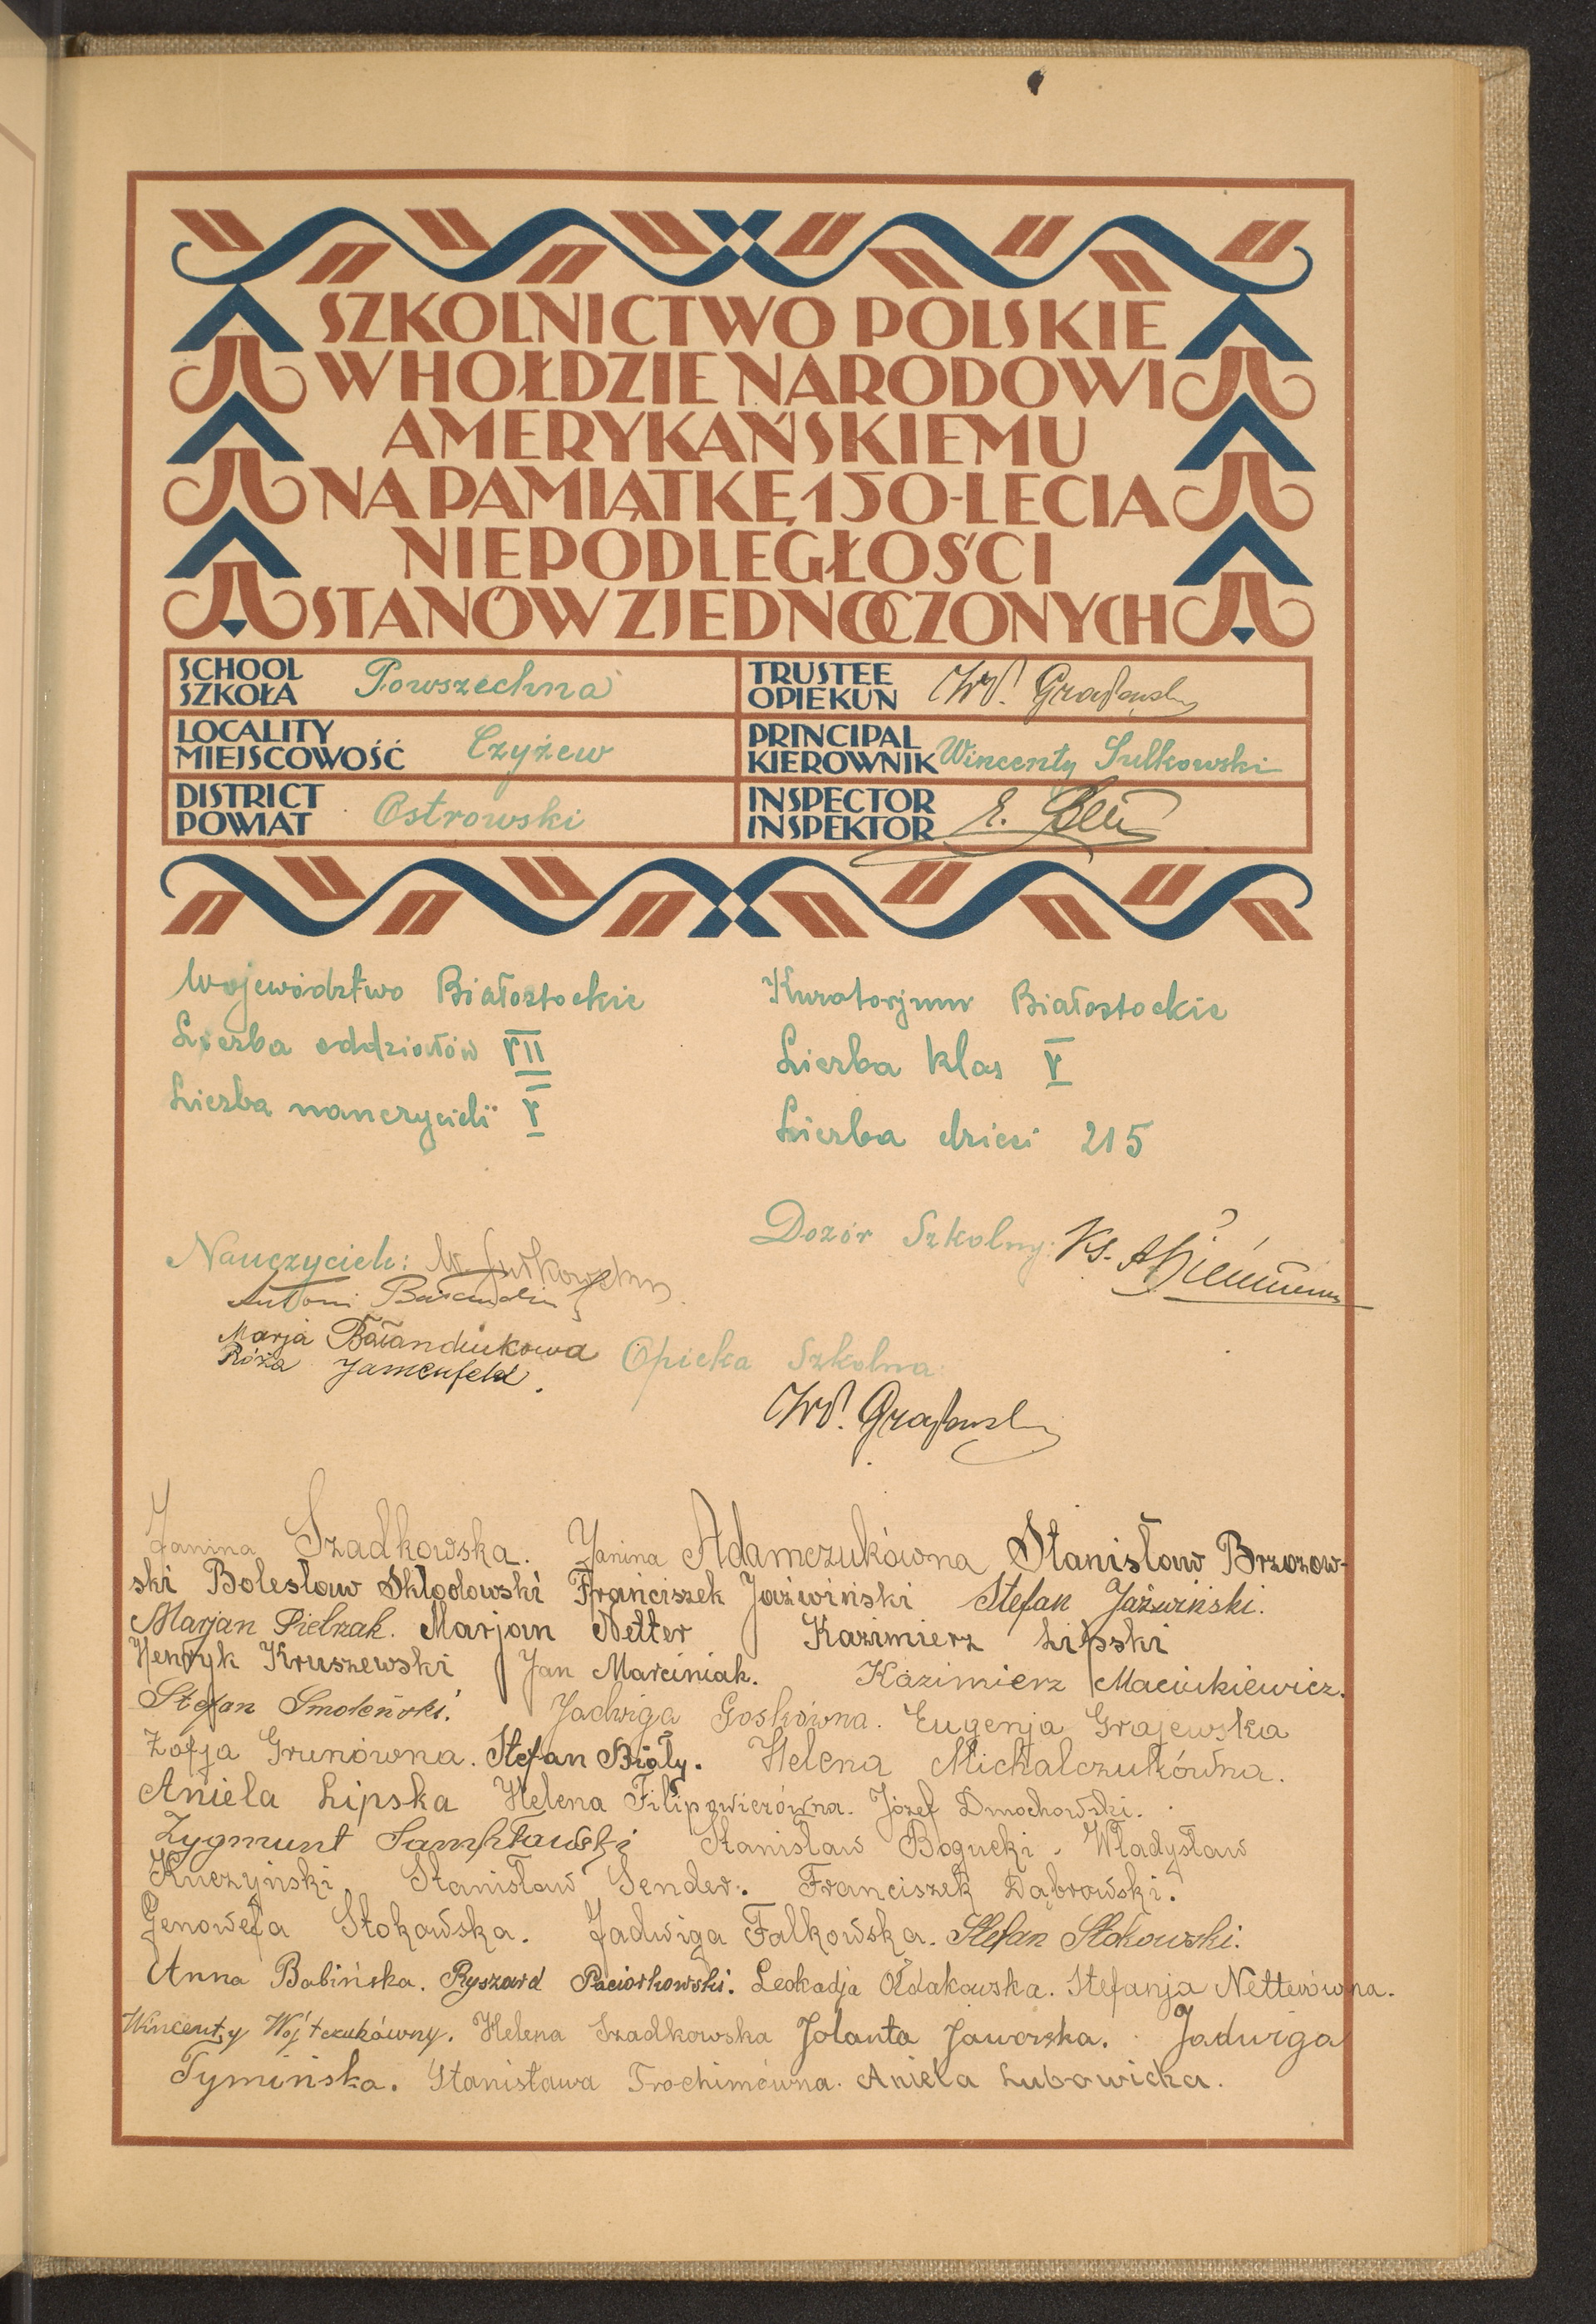 SZKOLNICTWO POLSKIE
W HOŁDZIE NARODOWI
AMERYKAŃSKIEMU
NA PAMIĄTKĘ 150-LECIA
NIEPODLEGŁOŚCI
STANÓW ZJEDNOCZONYCH
SCHOOL
SZKOŁA Powszechna
TRUSTEE
OPIEKUN Wł. Grajewski
LOCALITY
MIEJSCOWOŚĆ Czyżew
PRINCIPAL
KIEROWNIK Wincenty Sulkowski
DISTRICT
POWIAT Ostrowski
INSPECTOR
INSPEKTOR E.
Województwo Białostockie
Kuratorjum Białostockie
Liczba oddziałów VII
Liczba klas V
Liczba nauczycieli V
Liczba dzieci 215
Dozór Szkolny: Ks.
Nauczyciele: W. Sulkowski
Antoni
Marja Bałandiukowa
Róża Jamenfeld.
Opieka Szkolna
Wł. Grajewski
Janina Szadkowska. Janina Adamczukówna Stanisław Brzozow-
ski Bolesław Skłodowski Franciszek Jaźwiński Stefan Jaźwiński.
Marjan Pielzak. Marjan Netter Kazimierz Lipski
Henryk Kruszewski Jan Marciniak. Kazimierz Maciukiewicz.
Stefan Smoleński. Jadwiga Goskówna. Eugenja Grajewska
Zofja Grunówna. Stefan Biały. Helena Michalczukówna.
Aniela Lipska Helena Filipowiczówna. Józef Dmochowski.
Zygmunt Samsławski Stanisław Bogucki. Władysław
Kuczyński. Stanisław Sender. Franciszek Dąbrowski.
Genowefa Stokowska. Jadwiga Falkowska. Stefan Stokowski.
Anna Babińska. Ryszard Paciorkowski. Leokadja Ołdakowska. Stefanja Netterówna.
Wincenty Wójtczukówny. Helena Szadkowska Jolanta Jaworska. Jadwiga
Tymińska. Stanisława Trochimówna. Aniela Lubowicka.